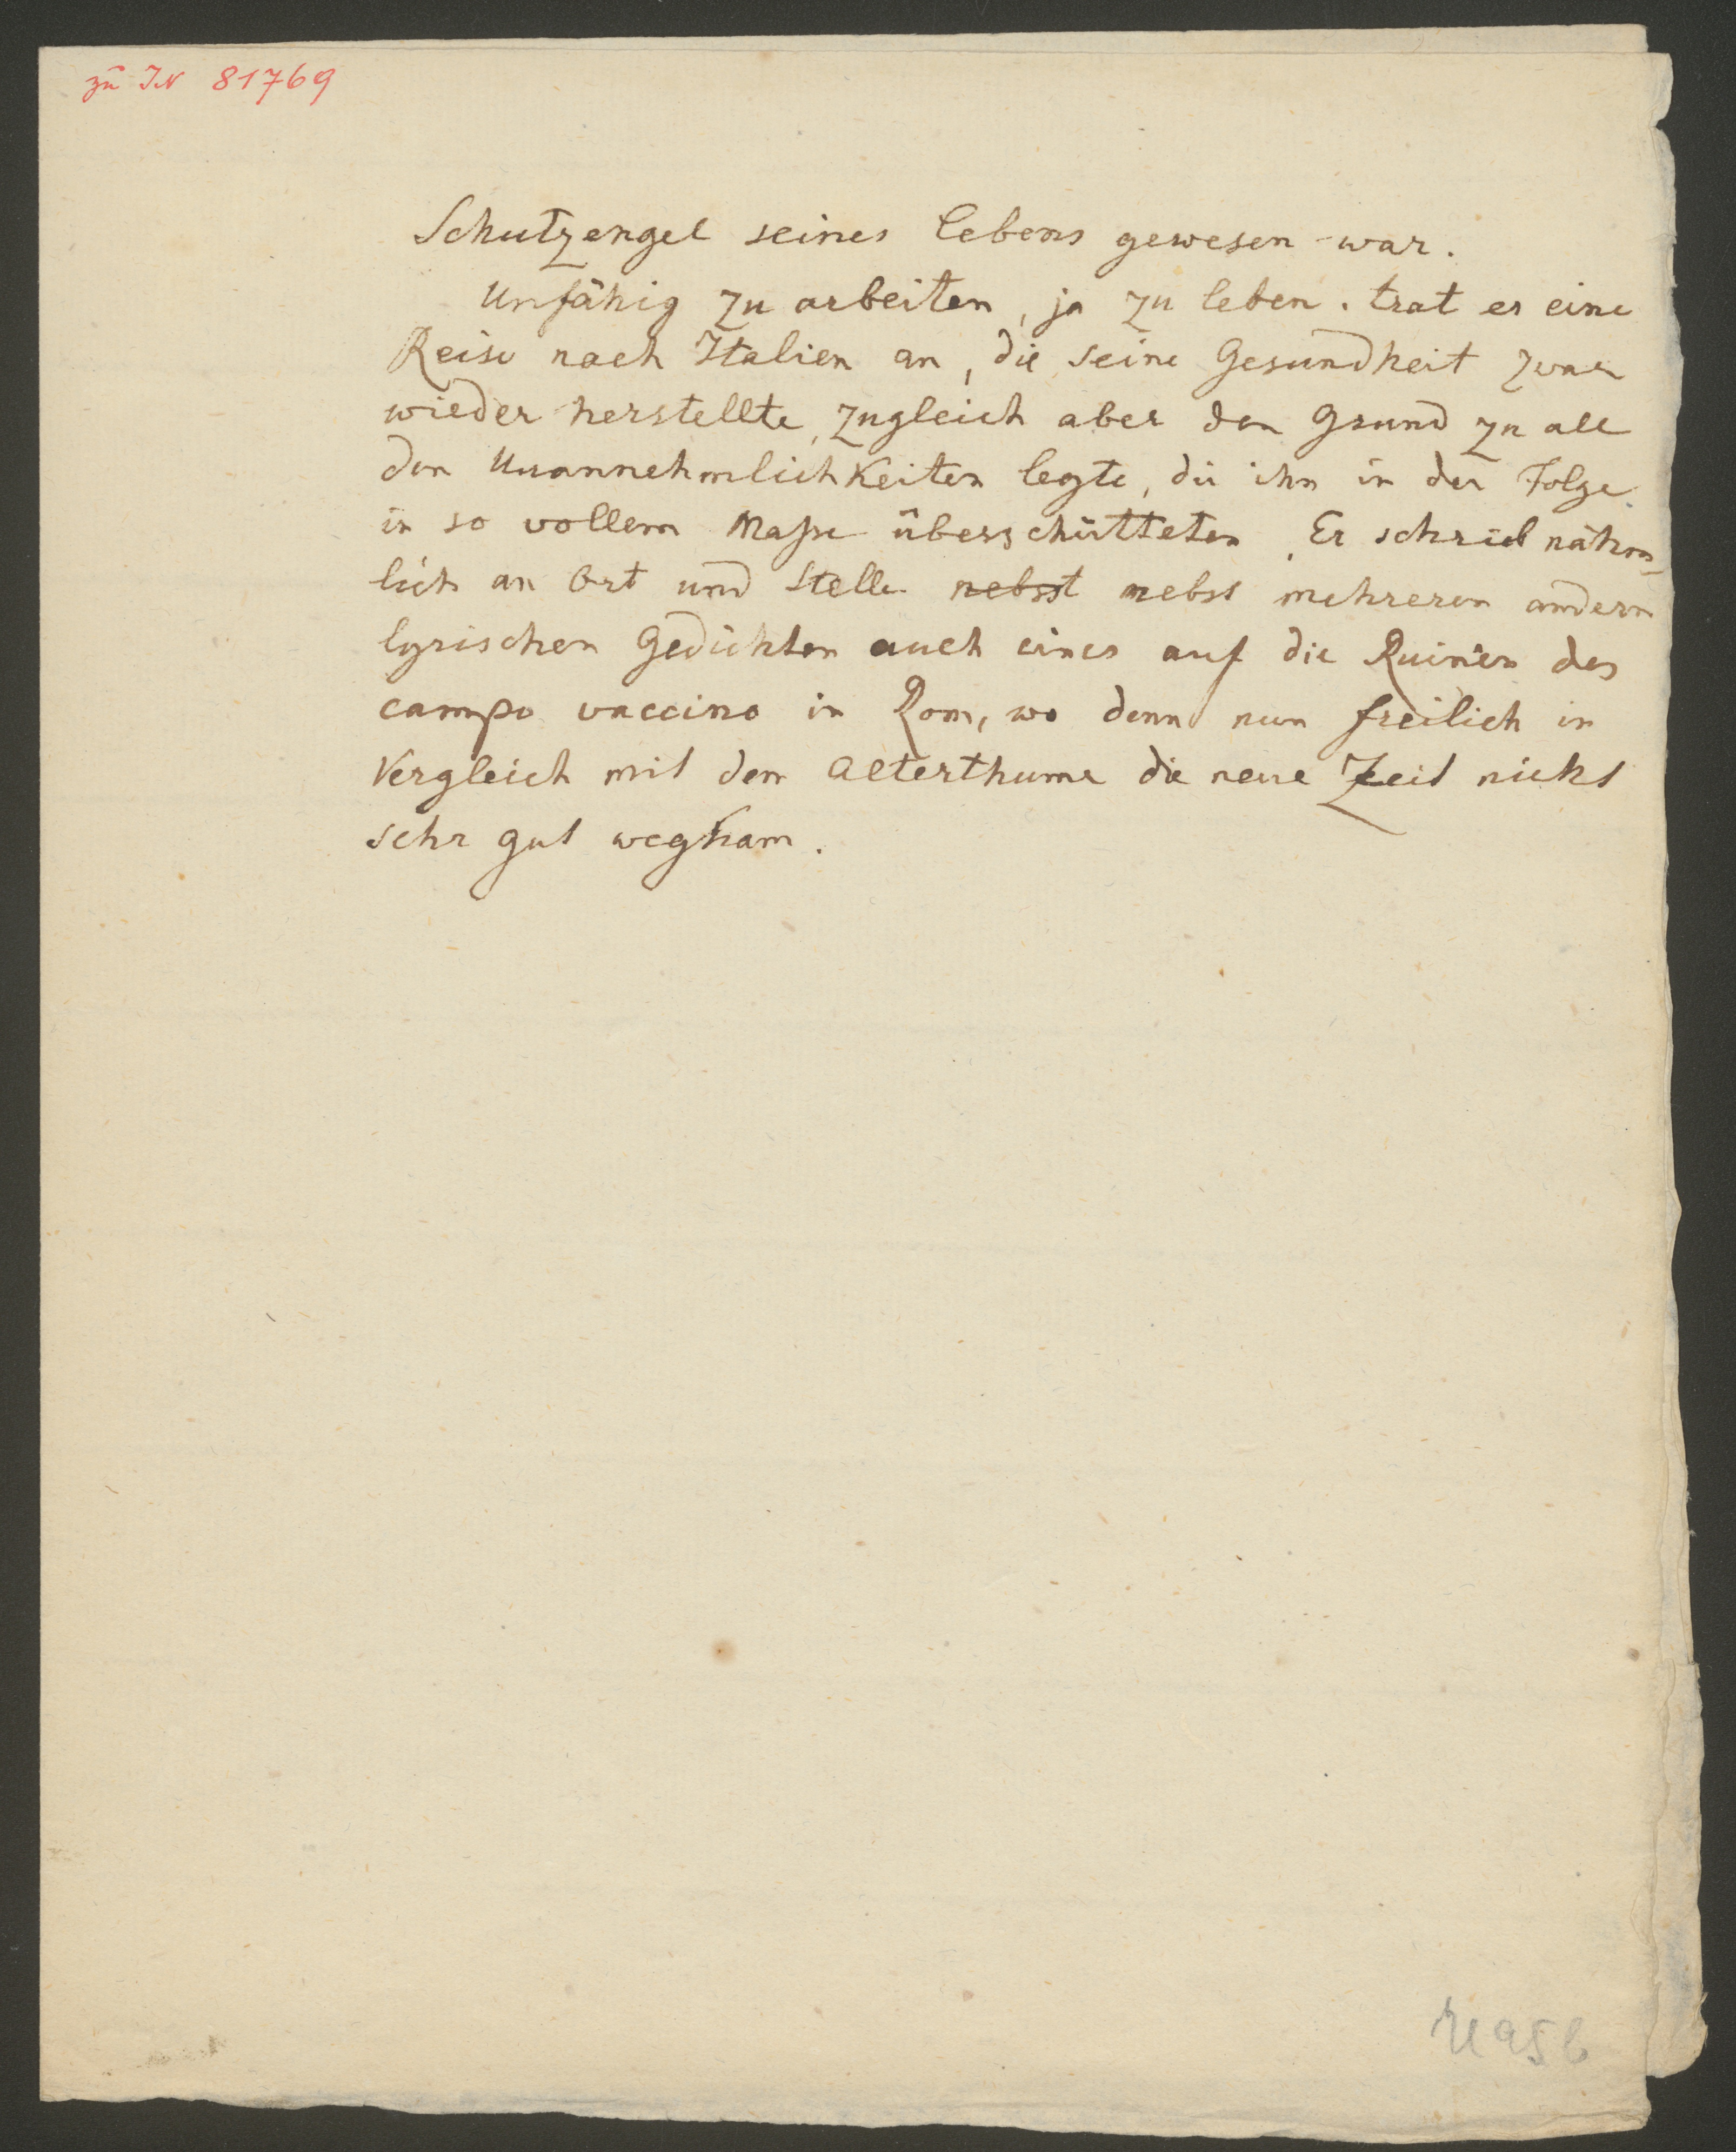 zu IN 81769
Schutzengel seines Lebens gewesen war.
Unfähig zu arbeiten, ja zu leben. trat er eine
Reise nach Italien an, die seine Gesundheit zwar
wieder herstellte, zugleich aber den Grund zu all
den Unannehmlichkeiten legte, die ihn in der Folge
in so vollem Maße überschütteten. Er schrieb nähm-
lich an Ort und Stelle nebst nebst mehreren andern
lyrischen Gedichten auch eines auf die Ruinen des
campo vaccino in Rom, wo denn nun freilich in
Vergleich mit dem Alterthume die neue Zeit nicht
sehr gut wegkam.